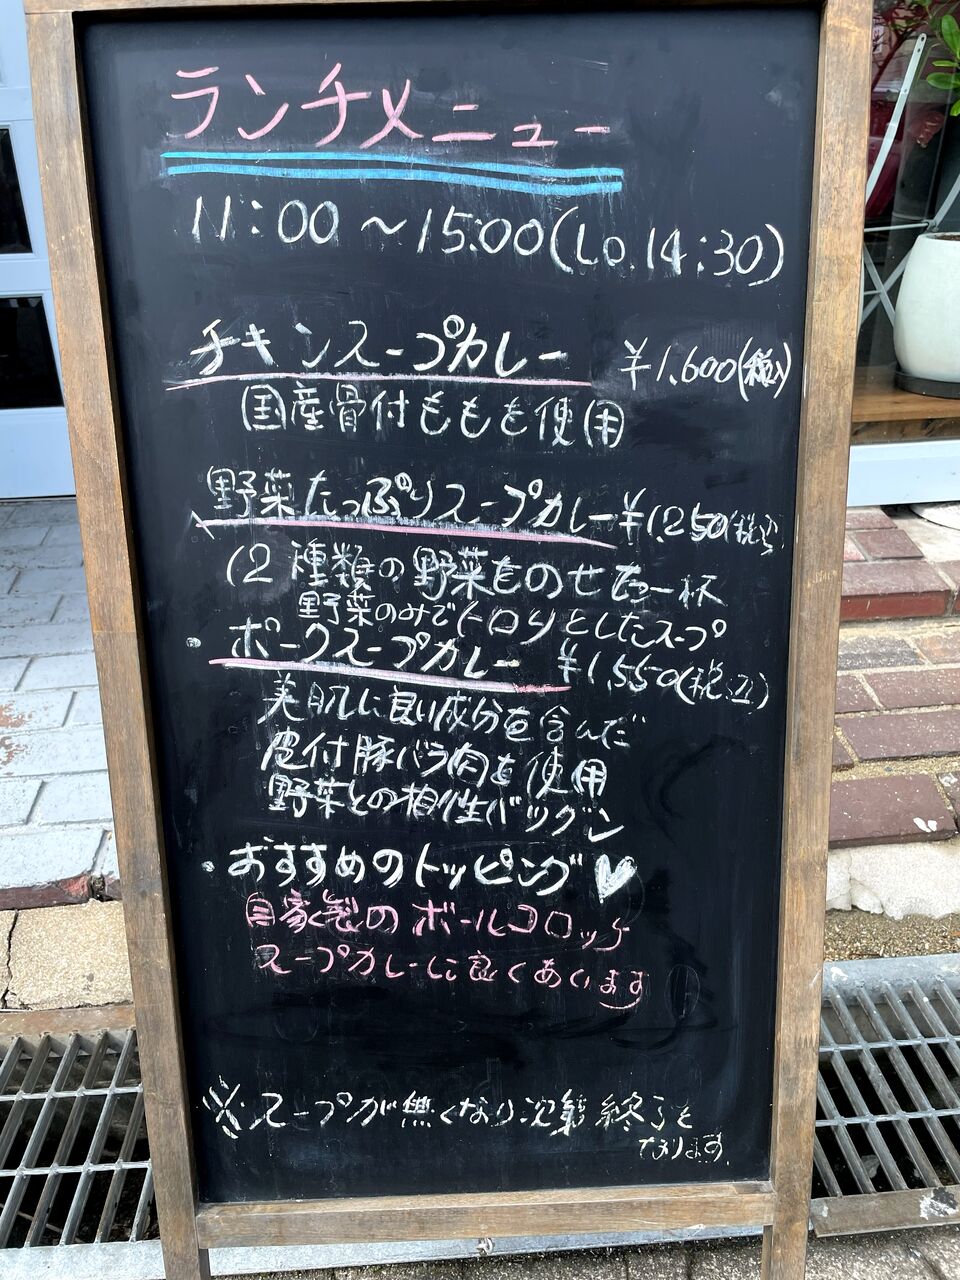 ランチメニュー
11:00~15:00(LO.14:30)
チキンスープカレー ¥1,600(税込)
国産骨付ももを使用
野菜たっぷりスープカレー ¥1,250(税込)
12種類の野菜をのせた一杯
野菜のみでトロりとしたスープ
・ポークスープカレー ¥1,550(税込)
美肌に良い成分を含んだ
皮付豚バラ肉を使用
野菜との相性バッグン
・おすすめのトッピング♥
自家製のボールコロッケ
スープカレーに良くあいます
※スープが無くなり次第終了と
なります